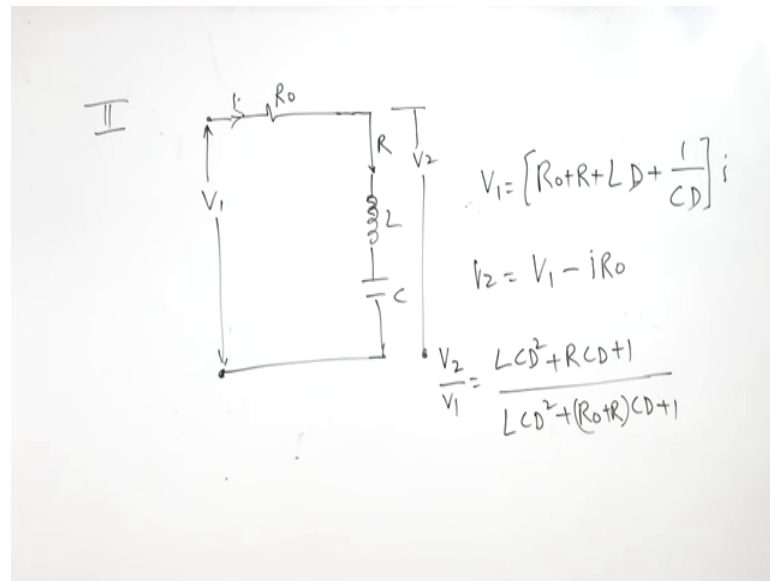 II
i
R0
V1
R
L
C
V2
V1 = [R0+R+LD+1/CD] i
V2 = V1 - iR0
V2/V1 = LCD²+RCD+1/LCD²+(R0+R)CD+1